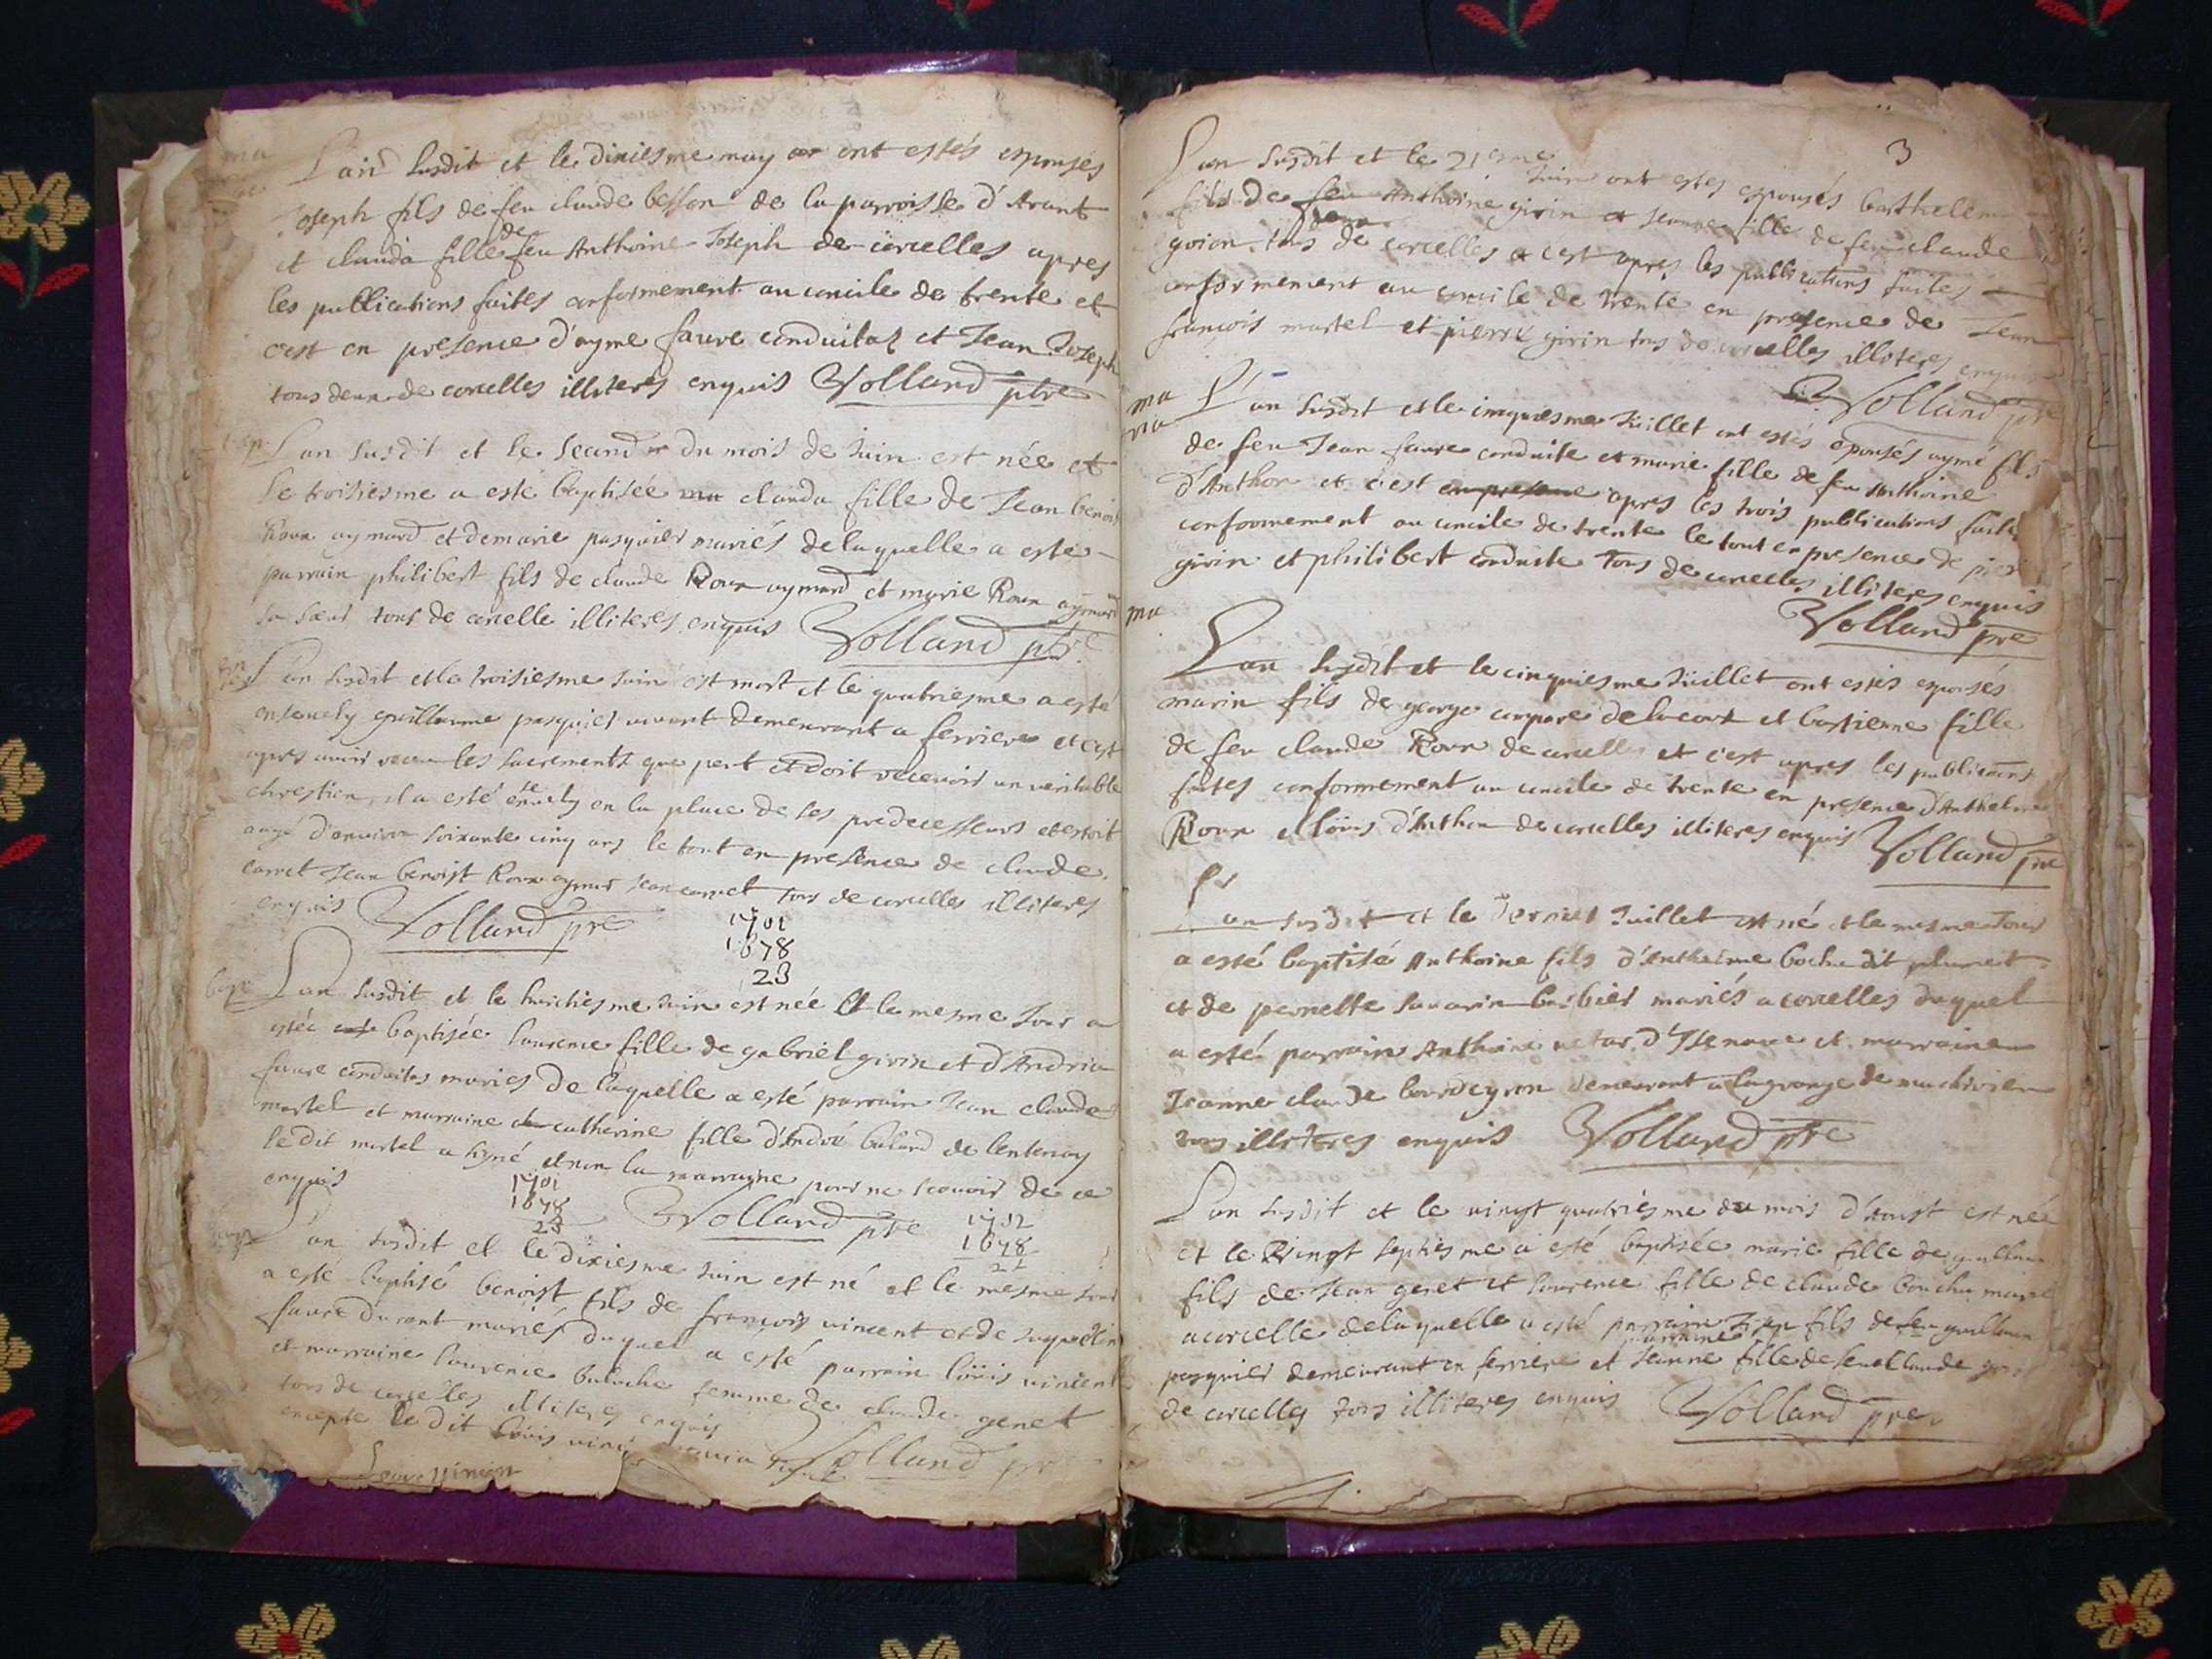 L'an susdit et le dixiesme may ont estés espousés
Joseph fils de feu claude besson de la parroisse d'Arant
et clauda fille de feu Anthoine Joseph de corcelles apres
les publications faites conformement au concile de trente et
c'est en presence d'ayme faure conduitaz et Jean Joseph
tous deux de corcelles illiteres enquis Volland ptre
L'an susdit et le second du mois de Juin est née et
le troisiesme a esté baptisée clauda fille de Jean benoist
Roux aymard et de marie pasquier mariés de laquelle a esté
parrain philibert fils de claude Roux aymard et marie Roux aymard
sa sœur tous de corcelle illiteres enquis Volland ptre
L'an susdit et le troisiesme Juin est mort et le quatriesme a esté
ensevely guillaume pasquier vivant demeurant a ferriere et c'est
apres avoir receu les sacrements que peut et doit recevoir un veritable
chrestien, il a esté ensevely en la place de ses predecesseurs et estoit
aagé d'environ soixante cinq ans le tout en presence de claude
carret Jean benoist Roux aymard Jean carret tous de corcelles illiteres
enquis Volland pre
1701
1678
23
bapt L'an susdit et le huictiesme Juin est née et le mesme Jour a
estée baptisée laurence fille de gabriel girin et d'Andria
faure conduitas mariés de laquelle a esté parrain Jean claude
martel et marraine catherine fille d'André balard de lentenay
le dit martel a signé et non la marraine pour ne scavoir de ce
enquis Volland pre
1701
1678
23
1702
1678
L'an susdit et le dixiesme Juin est né et le mesme Jour
a esté baptisé benoist fils de françois vincent et de Jaqueline
faure durant mariés duquel a esté parrain loüis vincent
et marraine laurence baloche femme de claude genet
tous de corcelles illiteres enquis
excepté le dit loüis vincent Volland pre
3
L'an susdit et le 21esme Juin ont estes espousés barthelemy
fils de feu Anthoine girin et Jeanne fille de feu claude
goion tous de corcelles et c'est apres les publications faites
conformement au concile de trente en presence de Jean
françois martel et pierre girin tous de corcelles illiteres enquis
Volland pre
ma
ria L'an susdit et le cinquiesme Juillet ont estés epousés aymé fils
de feu Jean faure conduite et marie fille de feu Anthoine
d'Anthon et c'est en presence apres les trois publications faites
conformement au concile de trente le tout en presence de pierre
girin et philibert conduite tous de corcelles illiteres enquis
Volland pre
ma
L'an susdit et le cinquiesme Juillet ont estés espousés
marin fils de george compare de la coux et bastienne fille
de feu claude Roux de corcelles et c'est apres les publications
faites conformement au concile de trente en presence d'Anthelme
Roux et loüis d'Anthon de corcelles illiteres enquis Volland pre
L'an susdit et le dernier Juillet est né et le mesme Jour
a esté baptisé Anthoine fils d'Anthelme bochu dit plumet
et de pernette savarin barbier mariés a corcelles duquel
a esté parrain Anthoine d'Isenave et marraine
Jeanne claude bourdeyron demeurant a la grange de machivier
tous illiteres enquis Volland ptre
L'an susdit et le vingt quatriesme du mois d'Aoust est née
et le Vingt septiesme a esté baptisée marie fille de guillaume
fils de Jean genet et laurence fille de claude bouchu mariés
a corcelle de laquelle a esté parrain Jean fils de feu guillaume
pasquier demeurant en ferriere et marraine Jeanne fille de feu claude
de corcelles tous illiteres enquis Volland pre